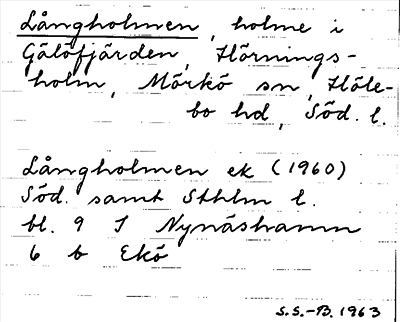 Långholmen, holme i
Gälöfjärden, Hörnings-
holm, Mörkö sn, Höle-
bo hd, Söd. l.
Långholmen ek (1960)
Söd. samt Sthlm l.
bl. 9 I Nynäshamn
6 b Ekö
S.S.-B. 1963